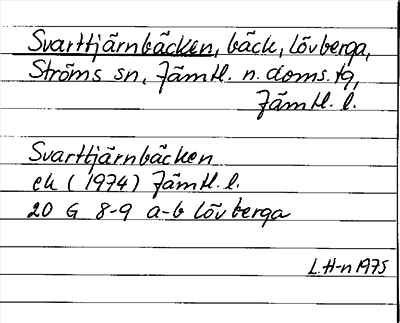 Svarttjärnbäcken, bäck, Lövberga,
Ströms sn, Jämtl. n. doms. tg,
Jämtl. l.
Svarttjärnbäcken
ek (1974) Jämtl. l.
20 G 8-9 a-b Lövberga
L.H-n 1975